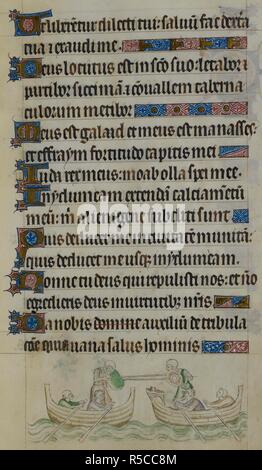 Ut liberentur dilecti tui: saluū fac dextera
tua et exaudi me.
Deus locutus est in sc̄o suo: letabor et
partibor siccimā et cōuallem taberna
culorum metibor.
Meus est galaad et meus est manasses:
et effraym fortitudo capitis mei
Iuda rex meus: moab olla spei mee.
In ydumeam extendā calciamētū
meū: m̄ alienigene subditi sunt
Quis deducet me in ciuitatē munitā:
quis deducet me usque in ydumeam.
Nonne tu deus qui repulisti nos: et nō
egredieris deus in uirtutibꝫ nr̄is.
Da nobis domine auxiliū de tribula
cōe quia uana salus hominis
alamy
Image ID: R5CC8M
www.alamy.com